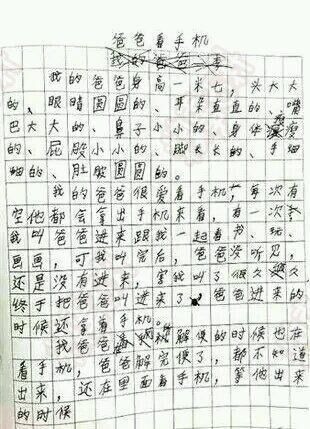 爸爸看手机
我的爸爸
我的爸爸身高一米七,头大大
的、眼睛圆圆的、耳朵直直的、嘴
巴大大的、鼻子小小的、身体瘦瘦
的、屁股小小的、脚长长的、手细
细的、肚皮圆圆的。
我的爸爸很爱看手机,每次有
空他都会拿出手机来看,有一次
我叫爸爸进来跟我一起看书、玩、
画画,可我叫完后,爸爸没听见,
还是没有进来,害我叫了很久很久
终于把爸爸叫进来了,爸爸进来的
时候还拿着手机。
我爸爸解便的时候也在
看手机,爸爸解完便了,都不知道
出来,还在里面看手机,等他出来
的时候